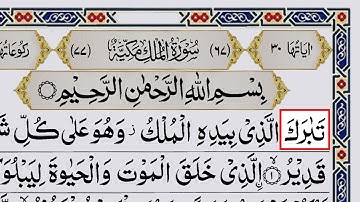 اٰيَاتُهَا ٣٠ (٦٧) سُوْرَةُ الْمُلْكِ مَكِّيَّةٌ (٧٧) رُكُوْعَاتُهَا
بِسْمِ اللّٰهِ الرَّحْمٰنِ الرَّحِيْمِ
تَبٰرَكَ الَّذِىْ بِيَدِهِ الْمُلْكُ ز وَهُوَ عَلٰى كُلِّ شَ
قَدِيْرُ ۙ﴿١﴾ الَّذِىْ خَلَقَ الْمَوْتَ وَالْحَيٰوةَ لِيَبْلُوَ